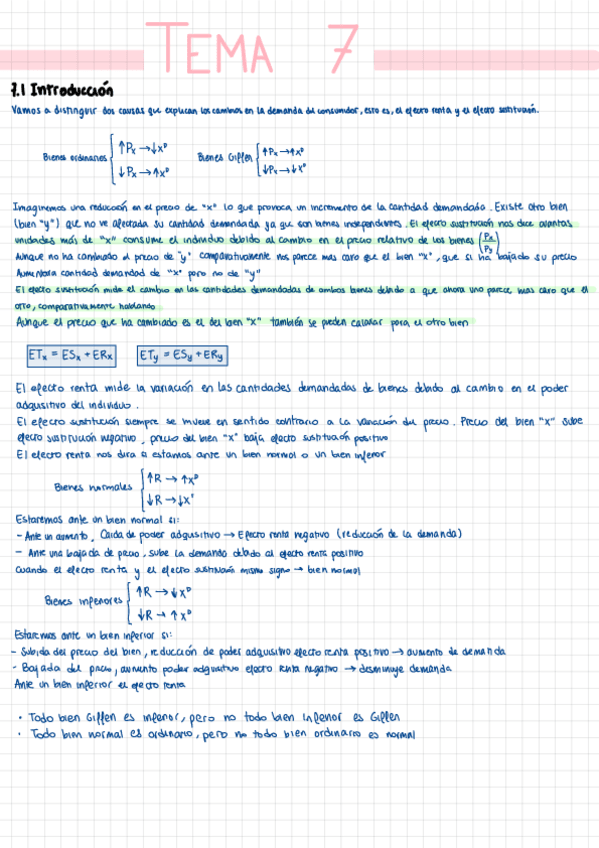 TEMA 7
7.1 Introducción
Vamos a distinguir dos causas que explican los cambios en la demanda del consumidor, esto es, el efecto renta y el efecto sustitución.
Bienes ordinarios { ↑Px → ↓xᴰ
↓Px → ↑xᴰ
Bienes Giffen { ↑Px → ↑xᴰ
↓Px → ↓xᴰ
Imaginemos una reducción en el precio de "x" lo que provoca un incremento de la cantidad demandada. Existe otro bien
(bien "y") que no ve afectada su cantidad demandada ya que son bienes independientes. El efecto sustitución nos dice cuantas
unidades más de "x" consume el individuo debido al cambio en el precio relativo de los bienes (Px/Py)
Aunque no ha cambiado el precio de "y" comparativamente nos parece mas caro que el bien "x", que si ha bajado su precio
Aumentara cantidad demandad de "x" pero no de "y"
El efecto sustitución mide el cambio en las cantidades demandadas de ambos bienes debido a que ahora uno parece mas caro que el
otro, comparativamente hablando
Aunque el precio que ha cambiado es el del bien "x" también se pueden calcular para el otro bien
ETx = ESx + ERx
ETy = ESy + ERy
El efecto renta mide la variación en las cantidades demandadas de bienes debido al cambio en el poder
adquisitivo del individuo.
El efecto sustitución siempre se mueve en sentido contrario a la variación del precio. Precio del bien "x" sube
efecto sustitución negativo, precio del bien "x" baja efecto sustitución positivo
El efecto renta nos dira si estamos ante un bien normal o un bien inferior
Bienes normales { ↑R → ↑xᴰ
↓R → ↓x
Estaremos ante un bien normal si:
- Ante un aumento, Caida de poder adqusitivo → Efecto renta negativo (reducción de la demanda)
- Ante una bajada de precio, sube la demanda debido al efecto renta positivo
Cuando el efecto renta y el efecto sustitución mismo signo → bien normal
Bienes inferiores { ↑R → ↓xᴰ
↓R → ↑xᴰ
Estaremos ante un bien inferior si:
- Subida del precio del bien, reducción de poder adquisitivo efecto renta positivo → aumento de demanda
- Bajada del precio, aumento poder adquisitivo efecto renta negativo → desminuye demanda
Ante un bien inferior el efecto renta
· Todo bien Giffen es inferior, pero no todo bien inferior es Giffen
· Todo bien normal es ordinario, pero no todo bien ordinario es normal